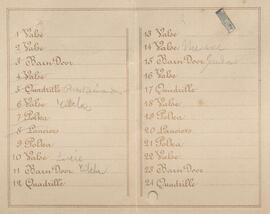 1 Valse
2 Valse
3 Barn Door
4 Valse
5 Quadrille
6 Valse
7 Polka
8 Lanciers
9 Polka
10 Valse
11 Barn Door
12 Quadrille
13 Valse
14 Valse
15 Barn Door
16 Valse
17 Quadrille
18 Valse
19 Polka
20 Lanciers
21 Polka
22 Valse
23 Barn Door
24 Quadrille